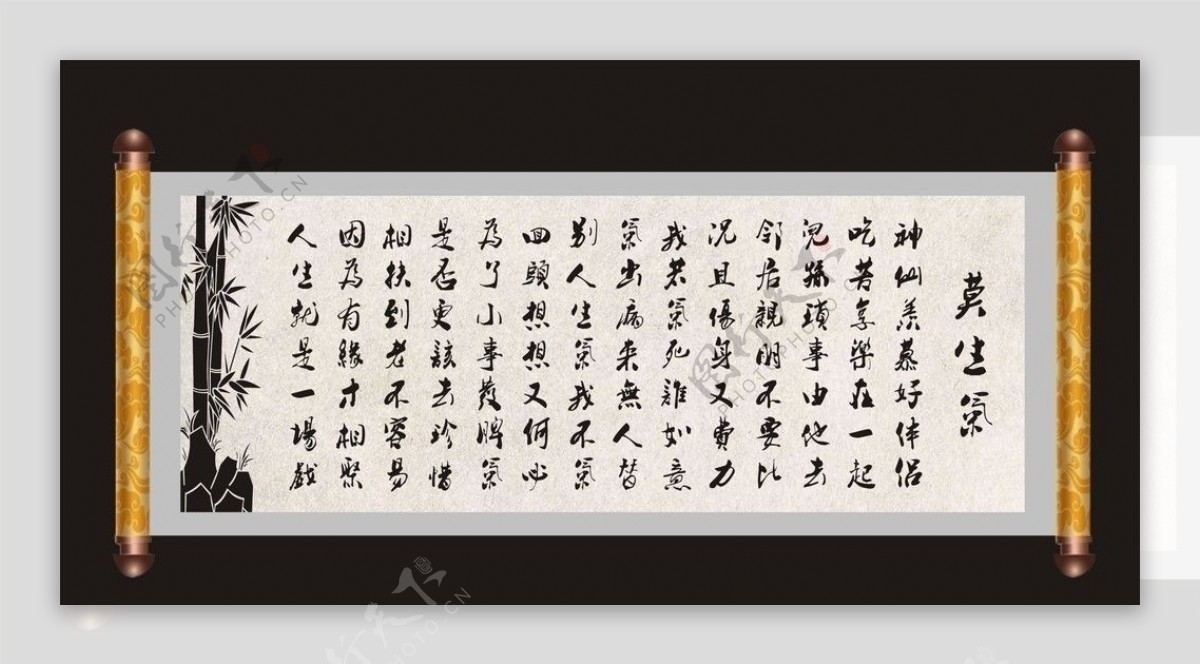 莫生氣
人生就是一場戲
因為有緣才相聚
相扶到老不容易
是否更該去珍惜
為了小事發脾氣
回頭想想又何必
別人生氣我不氣
氣出病來無人替
我若氣死誰如意
況且傷身又費力
邻居親朋不要比
兒孫瑣事由他去
吃苦享樂在一起
神仙羨慕好伴侶